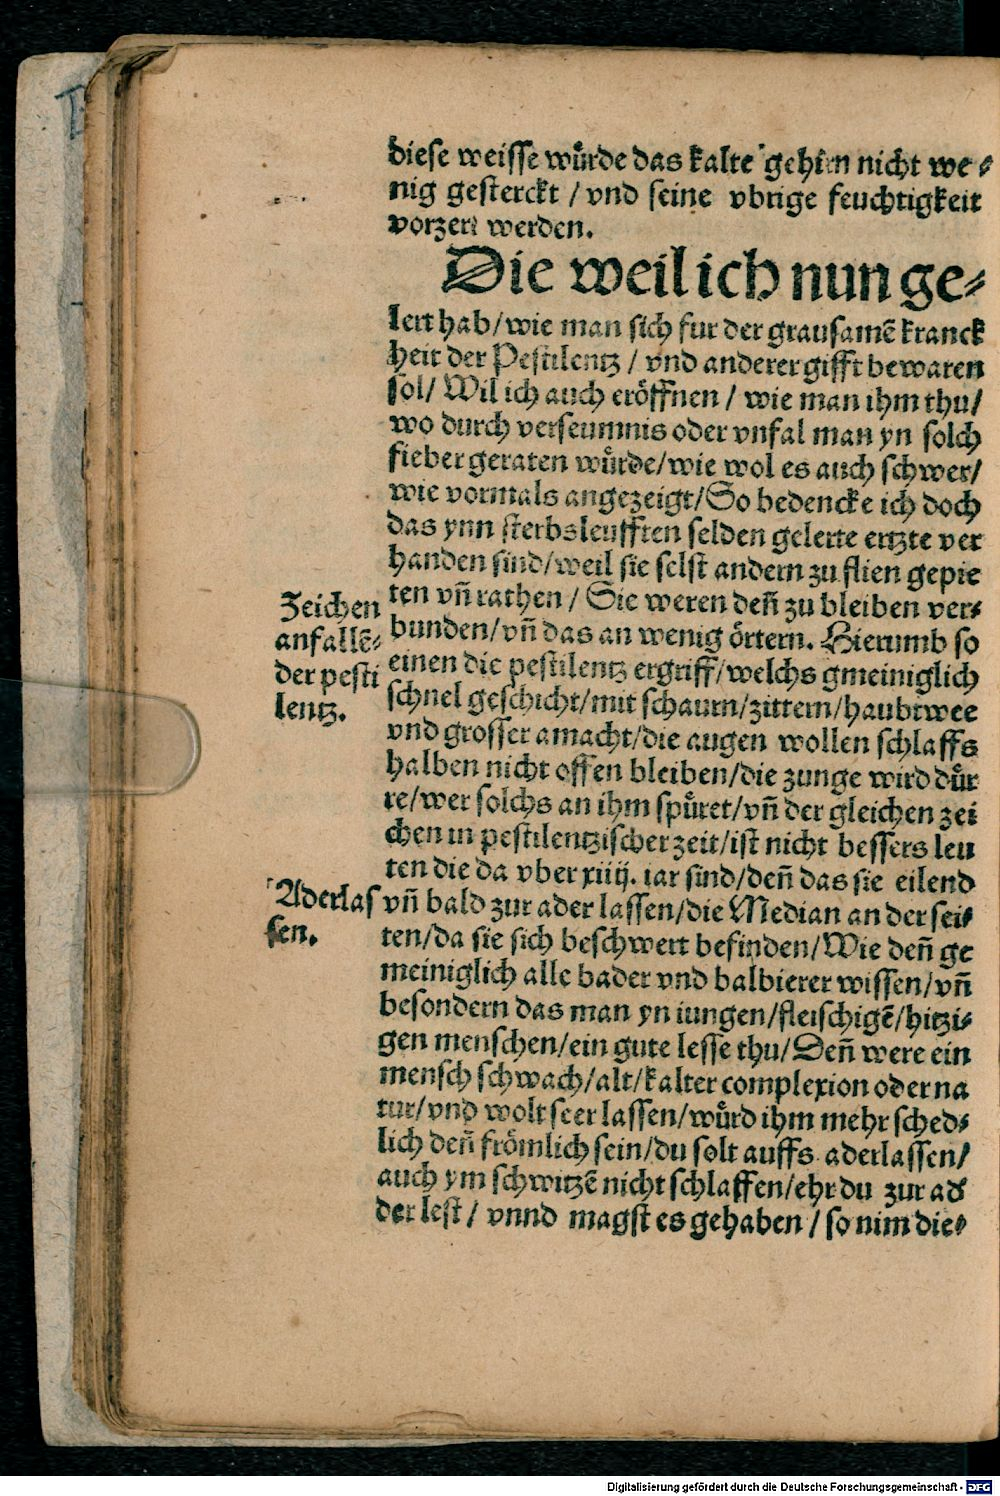 diese weisse wůrde das kalte gehirn nicht we⸗
nig gesterckt / vnd seine vbrige feuchtigkeit
vorzert werden.
Die weil ich nun ge⸗
lert hab/wie man sich fur der grausamē kranck
heit der Pestilentz / vnd anderer gifft bewaren
sol/ Wil ich auch eröffnen / wie man ihm thu/
wo durch verseumnis oder vnfal man yn solch
fieber geraten wůrde/wie wol es auch schwer/
wie vormals angezeigt/So bedencke ich doch
das ynn sterbsleufften selden gelerte ertzte ver
handen sind/weil sie selst andern zu flien gepie
ten vn̄ rathen / Sie weren den̄ zu bleiben ver⸗
bunden/vn̄ das an wenig örtern. Hierumb so
einen die pestilentz ergriff/welchs gmeiniglich
schnel geschicht/mit schaurn/zittern/haubtwee
vnd grosser amacht/die augen wollen schlaffs
halben nicht offen bleiben/die zunge wird důr
re/wer solchs an ihm spůret/vn̄ der gleichen zei
chen in pestilentzischer zeit/ist nicht bessers leu
ten die da vber xiiij. iar sind/den̄ das sie eilend
vn̄ bald zur ader lassen/die Median an der sei⸗
ten/da sie sich beschwert befinden/Wie den̄ ge
meiniglich alle bader vnd balbierer wissen/vn̄
besondern das man yn iungen/fleischigē/hitzi⸗
gen menschen/ein gute lesse thu/Den̄ were ein
mensch schwach/alt/kalter complexion oder na
tur/vnd wolt seer lassen/wůrd ihm mehr sched⸗
lich den̄ frömlich sein/du solt auffs aderlassen/
auch ym schwitzē nicht schlaffen/ehr du zur ad
der lest / vnnd magst es gehaben / so nim die⸗
Zeichen
anfallē⸗
der pesti
lentz.
Aderlas
sen.
Digitalisierung gefördert durch die Deutsche Forschungsgemeinschaft - DFG